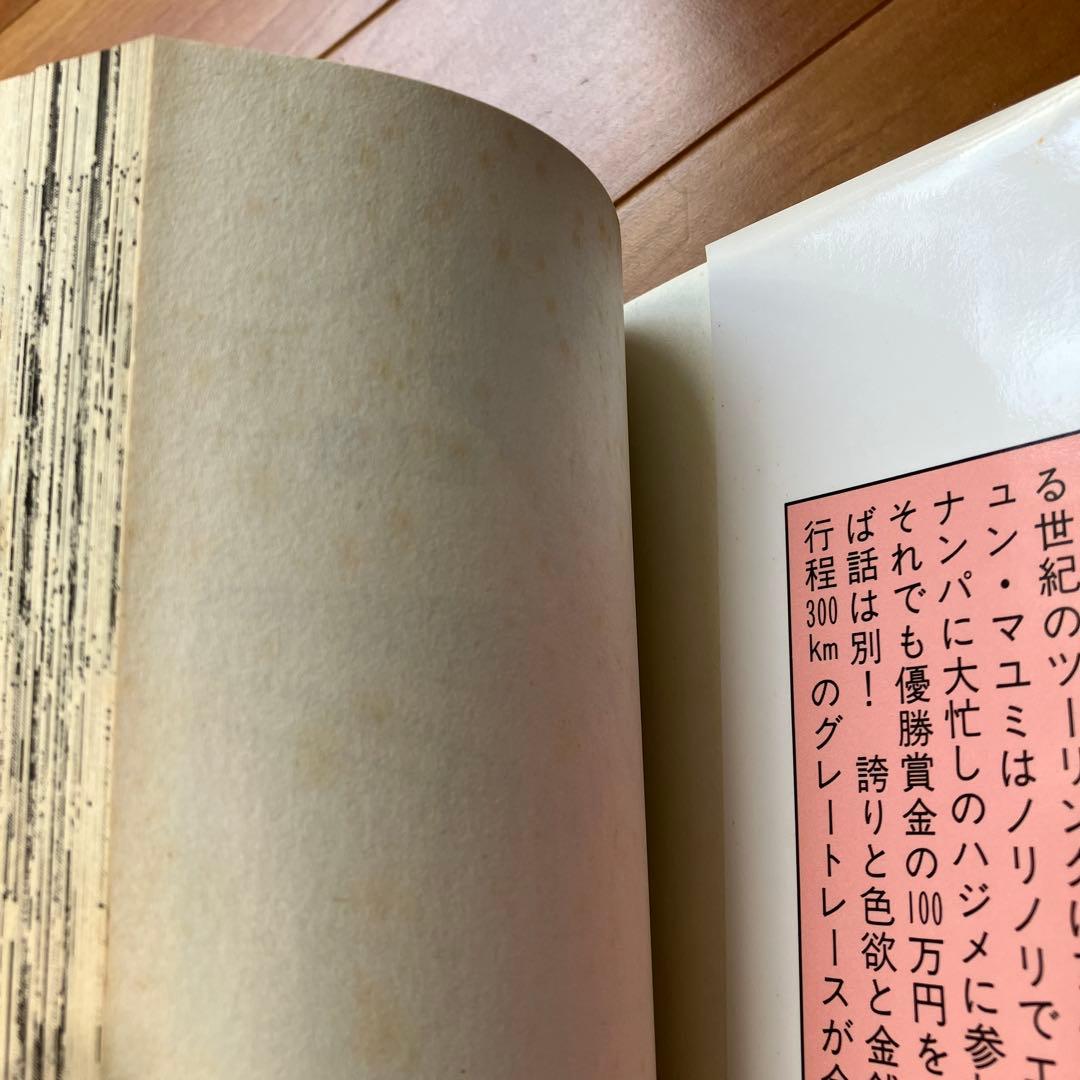 る世紀のツーリングは
ュン・マユミはノリノリで
ナンパに大忙しのハジメに参
それでも優勝賞金の100万円を
ば話は別! 誇りと色欲と金
行程300kmのグレートレースが